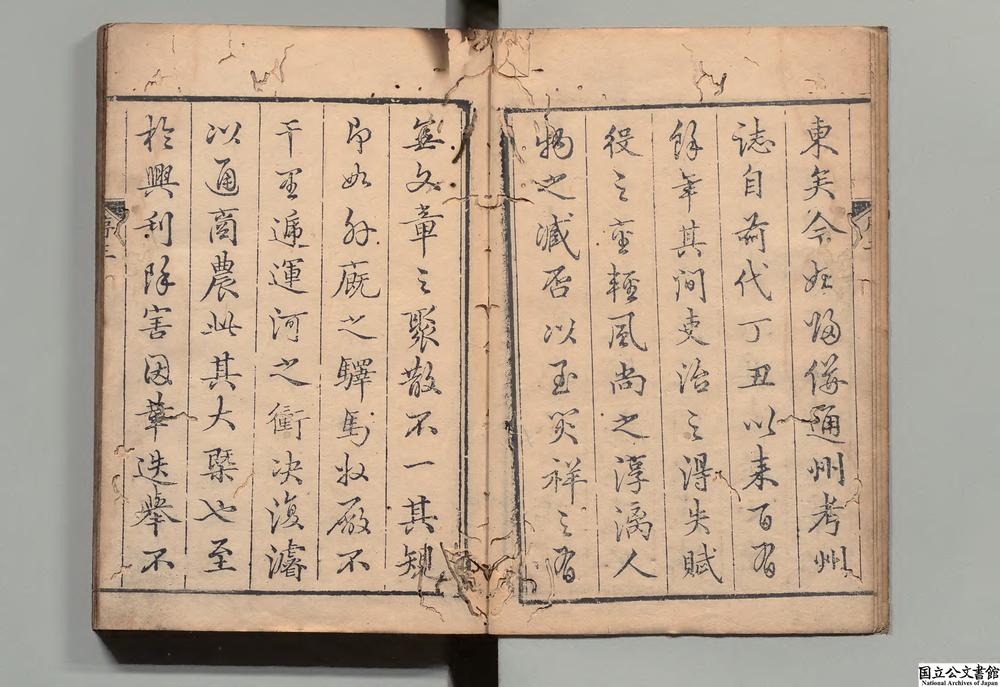 東矣今備通州考州
誌自前代丁丑以来百有
餘年其間吏治之得失賦
役之重輕風尚之淳漓人
物之臧否以至災祥之有
無文章之聚散不一其規
即如外廐之驛馬牧厰不
千里遞運河之衝決復濬
以通商農此其大槩也至
於興利除害因革迭舉不
国立公文書館
National Archives of Japan